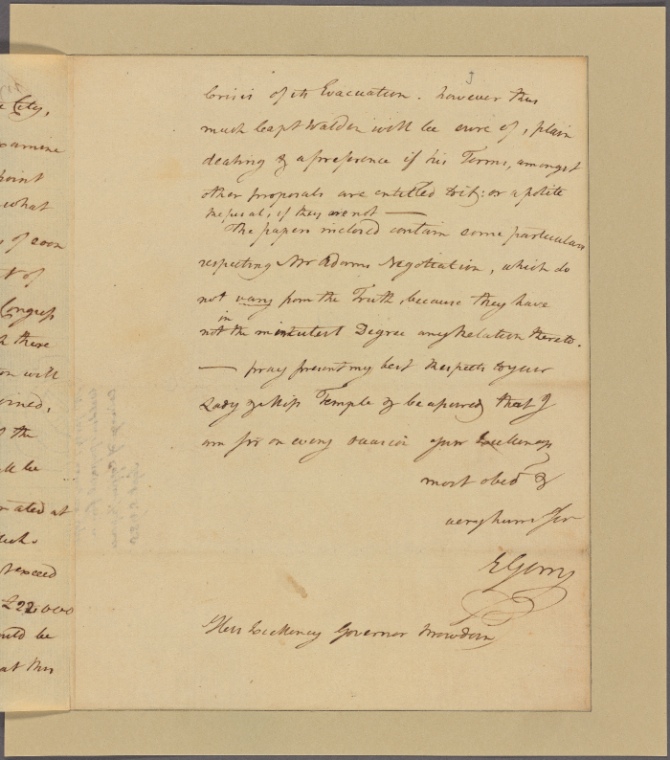 e City,
point
what
of soon
t of
Congress
there
on will
erned,
the
ll be
ated at
exceed
£22,000
uld be
at this
3
Crisis of its Evacuation. however thus
much Capt Walden will be sure of, plain
dealing & a preference if his Terms, amongst
other proposals are entitled to it; or a polite
Refusal, if they are not —
The papers inclosed contain some particulars
respecting Mr Adams Negotiation, which do
not vary from the Truth, because they have
not in the minutest Degree any Relation thereto.
— pray present my best Respects to your
Lady & Miss Temple & be assured that I
am Sir on every occasion your Excellencys
most obed &
very hum Ser
E Gerry
His Excellency Governor Bowdoin